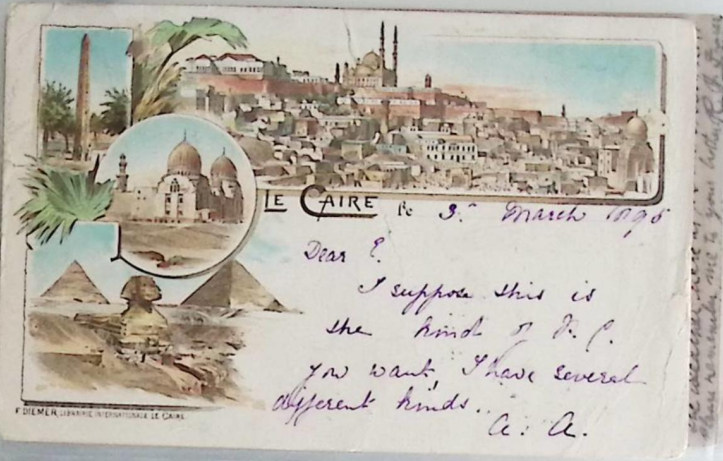 LE CAIRE le 3. March 1896
Dear E.
I suppose this is
the kind of P. C.
you want, I have several
different kinds..
A. A.
F. DIEMER, LIBRAIRIE INTERNATIONALE LE CAIRE
remember me to your